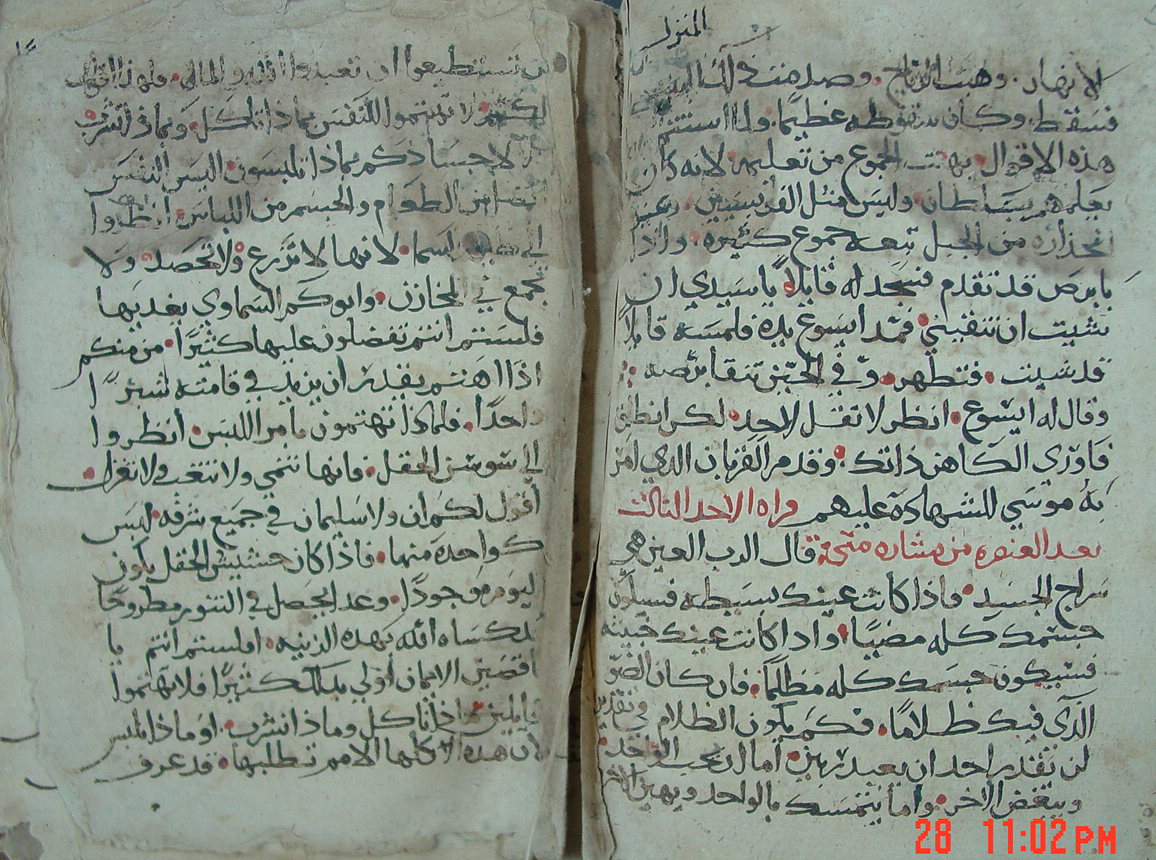 المنزل
لانهار. وهبت الرياح. وصدمت ذلك البيت
فسقط. وكان سقوطه عظيمًا. ولما استتم
هذه الاقوال. بهتت الجموع من تعليمه. لانه كان
يعلمهم بسلطان. وليس مثل الفريسيين.
انحداره من الجبل تبعه جموع كثيره. واذا
بابرص قد تقدم فسجد له قايلًا. يا سيدي ان
تشيت ان تنقيني. فمد ايسوع يده فلمسه قايلًا
قد شيت. فتطهر. وفي الحين تنقا برصه :
وقال له ايسوع. انظر لا تقل لاحد. لكن انطلق
فاوري الكاهن ذاتك. وقدم القربان الذي امر
به موسي للشهاده عليهم قراه الاحد الثالث
بعد العنصره من بشاره متي: قال الرب العين هي
سراج الجسد. فاذا كانت عينك بسيطه فسيكون
جسمك كله مضيًا. واذا كانت عينك خبيثه
فسيكون جسدك كله مظلمًا. فان كان الضو
الذي فيك ظلامًا. فكم يكون الظلام
لن يقدر احد ان يعبد ربين. اما ان يحب الواحد
ويبغض الاخر. واما يتمسك بالواحد ويهين الاخر
لن تستطيعوا ان تعبدوا الله والمال. فلهذا اقول
لكم لا تهتموا للنفس بماذا تاكل. وبماذا تشرب
ولا لاجسادكم بماذا تلبسون. اليس النفس
افضل من الطعام والجسم من اللباس. انظروا
الي طيور السما. لانها لا تزرع ولا تحصد. ولا
تجمع في المخازن. وابوكم السماوي يغديها
فلستم انتم تفضلون عليها كثيرًا. من منكم
اذا اهتم يقدر ان يزيد في قامته شبرًا
واحدًا. فلماذا تهتمون بامر اللبس. انظروا
الي سوسن الحقل. فانها تنمي ولا تتعب ولا تغزل.
اقول لكم ان ولا سليمان في جميع شرفه. لبس
كواحده منها. فاذا كان حشيش الحقل يكون
اليوم موجودًا. وغد يحصل في التنور مطروحًا
يكساه الله بهذه الزينه. افلستم انتم يا
ناقصين الايمان أولي بذلك كثيرًا. فلا تهتموا
قايلين ماذا ناكل وماذا نشرب. او ماذا نلبس
لان هذه كلها الامم تطلبها. قد عرف
28 11:02 PM